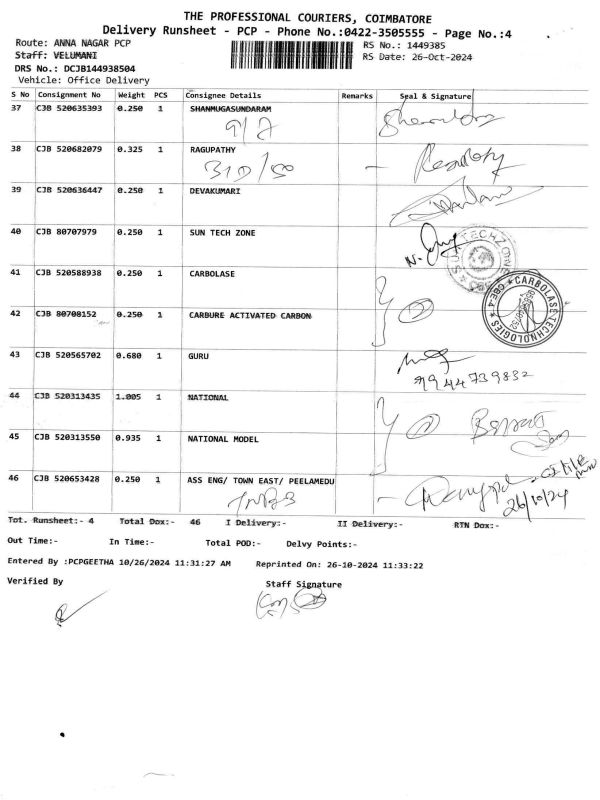 THE PROFESSIONAL COURIERS, COIMBATORE
Delivery Runsheet - PCP - Phone No.:0422-3505555 - Page No.:4
Route: ANNA NAGAR PCP
RS No.: 1449385
Staff: VELUMANI
RS Date: 26-Oct-2024
DRS No.: DCJB144938504
Vehicle: Office Delivery
S No Consignment No Weight PCS Consignee Details Remarks Seal & Signature
37 CJB 520635393 0.250 1 SHANMUGASUNDARAM
38 CJB 520682079 0.325 1 RAGUPATHY
39 CJB 520636447 0.250 1 DEVAKUMARI
40 CJB 80707979 0.250 1 SUN TECH ZONE
SUN TECH ZONE
41 CJB 520588938 0.250 1 CARBOLASE
CARBOLASE TECHNOLOGIES
42 CJB 80708152 0.250 1 CARBURE ACTIVATED CARBON
43 CJB 520565702 0.680 1 GURU
9944739832
44 CJB 520313435 1.005 1 NATIONAL
45 CJB 520313550 0.935 1 NATIONAL MODEL
46 CJB 520653428 0.250 1 ASS ENG/ TOWN EAST/ PEELAMEDU
26/10/24
Tot. Runsheet:- 4 Total Dox:- 46 I Delivery:- II Delivery:- RTN Dox:-
Out Time:- In Time:- Total POD:- Delvy Points:-
Entered By :PCPGEETHA 10/26/2024 11:31:27 AM Reprinted On: 26-10-2024 11:33:22
Verified By Staff Signature